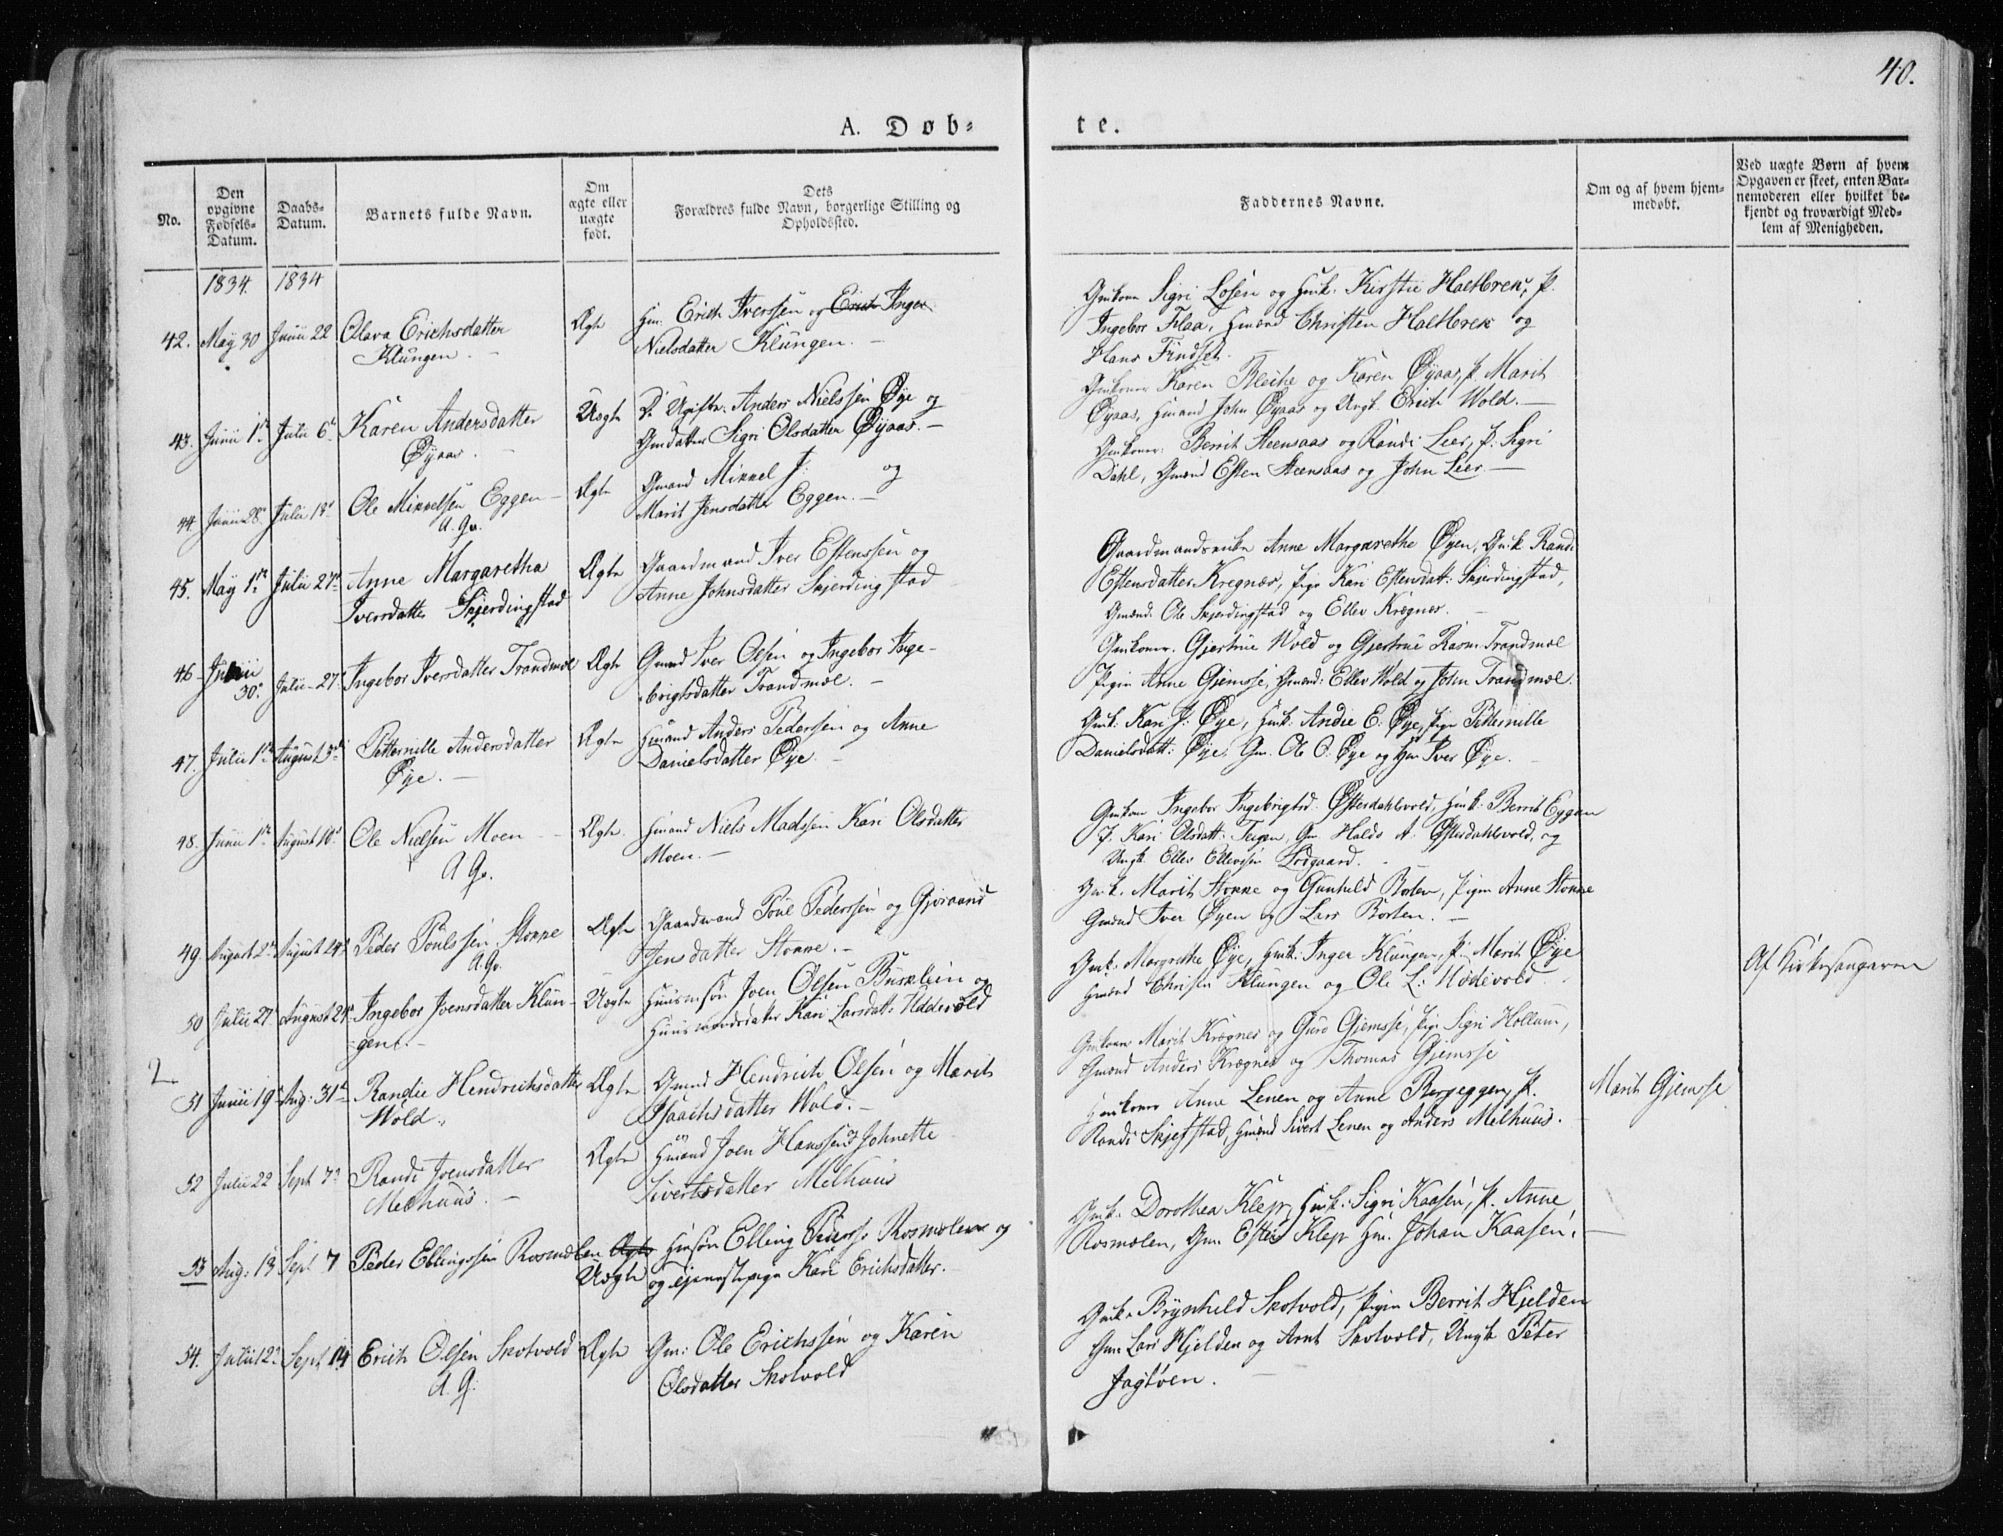 40.
A. Døb-
te.
No.
Den
opgivne
Fødsels-
Datum.
Daabs-
Datum.
Barnets fulde Navn.
Om
ægte eller
uægte
født.
Dets
Forældres fulde Navn, borgerlige Stilling og
Opholdssted.
Faddernes Navne.
Om og af hvem hjem-
medøbt.
Ved uægte Børn af hvem
Opgaven er skeet, enten Bar-
nemoderen eller hvilket be-
kjendt og troværdigt Med-
lem af Menigheden.
1834. 1834
42. May 30 Junii 22 Olava Erichsdatter
Klungen.
Ægte
Hm. Erich Iverssen og Erich Inger
Nielsdatter Klungen.
Gmkone Sigri Losen og Hmk. Kirstie Haltbrek, P.
Ingebor Flaa, Hmænd Christen Haltbrek og
Hans Findset.
43. Junii 1 Julii 6 Karen Andersdatter
Øyaas.
Uægte
D. Ugifte. Anders Nielssen Øye og
Gmdatter Sigri Olsdatter Øyaas.
Gmkoner Karen Bleike og Karen Øyaas, P. Marit
Øyaas, Hmand John Øyaas og Ungk. Erich Wold.
44. Junii 28 Julii 13 Ole Mikkelsen Eggen
A. Gv.
Ægte
Gmand Mikkel J: og
Marit Jensdatter Eggen.
Gmkoner: Berrit Steensaas og Randi Leer, P: Sigri
Dahl, Gmænd Esten Steensaas og John Leer
45. May 1 Julii 27 Anne Margaretha
Iversdatter Skjerdingstad
Ægte
Gaardmand Iver Estenssen og
Anne Johnsdatter Skjerdingstad
Gaardmandsenke Anne Margarethe Øyen, Gmk. Randi
Estensdatter Kregnes, Pige Kari Estensdatt: Skjerdingstad,
Gmænd: Ole Skjerdingstad og Ellev Kregnes.
46. Junii
30 Julii 27 Ingebor Iversdatter Trandmæl Ægte
Gmand Iver Olsen og Ingebor Inge-
brigtsdatter Trandmæl.
Gmkoner. Gjertrue Wold og Gjertrue Rasm. Trandmæl
Pigen Anne Gjemsse, Gmænd: Ellev Wold og John Trandmæl.
47. Julii 1 August 3 Petternille Andersdatter
Øye.
Ægte
Hmand Anders Pedersen og Anne
Danielsdatter Øye.
Gmk. Kari J: Øye, Hmk: Andie E. Øye, Pige Petternille
Danielsdatt: Øye, Gm. Ole O. Øye og Hm Iver Øye.
48. Junii 1 August 10 Ole Nielsen Moen
A Gv.
Ægte
Hmand Niels Madssen Kari Olsdatter
Moen.
Gmkone Ingebor Ingebrigtsd. Østerdahlsvold, Hmk. Berrit Eggen
P. Kari Olsdatt: Teigen, Gm. Haldo A. Østerdahlsvold, og
Ungk. Ellev Ellevsen Lødgaard.
49. August 2 August 24 Peder Poulssen Storre
A. Gv.
Ægte
Gaardmand Poul Pederssen og Gjoraand
Jensdatter Storre.
Gmk. Marit Storre og Gunhild Borten, Pigen Anne Storre
Gmænd Iver Øyen og Lars Borten.
50 Julii 27 August 24 Ingebor Joensdatter Klun-
gen.
Uægte
Huusmsøn Joen Olsen Busklein og
Huusmandsdatter Kari Larsdatt: Uddevold
Gmk: Margrethe Øye, Hmk: Inger Klungen, P: Marit Øye
Gmænd Christen Klungen og Ole L: Hodevold.
Af Kirkesangeren
2
51 Junii 19 Aug: 31 Randie Hendrichsdatter
Wold.
Ægte
Gmand Hendrich Olsen og Marit
Isaachsdatter Wold.
Gmkoner Marit Krægnes og Guro Gjemsse, Pige Sigri Hollum,
Gmænd Anders Krægnes og Thomas Gjemsse
Marit Gjemsse
52 Julii 22 Sept 7 Randi Joensdatter
Melhuus.
Ægte
Hmand Joen Hanssen og Johnette
Sivertsdatter Melhuus
Hmkoner Anne Lenen og Anne Bergeggen, P.
Randi Skjefstad, Hmænd Sivert Lenen og Anders Melhuus.
53 Aug: 13 Sept 7 Peder Ellingssen Rosmælen Ægte
Uægte
Hmsøn Elling Pederss. Rosmælen og
og tjenestepige Kari Erichsdatter.
Gmk. Dorothea Klep, Hmk: Sigri Kaasen, P. Anne
Rosmælen, Gm. Esten Klep Hm. Johan Kaasen.
54. Julii 12 Sept 14 Erich Olsen Skotvold
A. G.
Ægte
Gm: Ole Erichssen og Karen
Olsdatter Skotvold
Gmk. Brynhild Skotvold, Pigen Berrit Hjelden
Gm Lars Hjelden og Arnt Skotvold, Ungk Peter
Jagtøen.